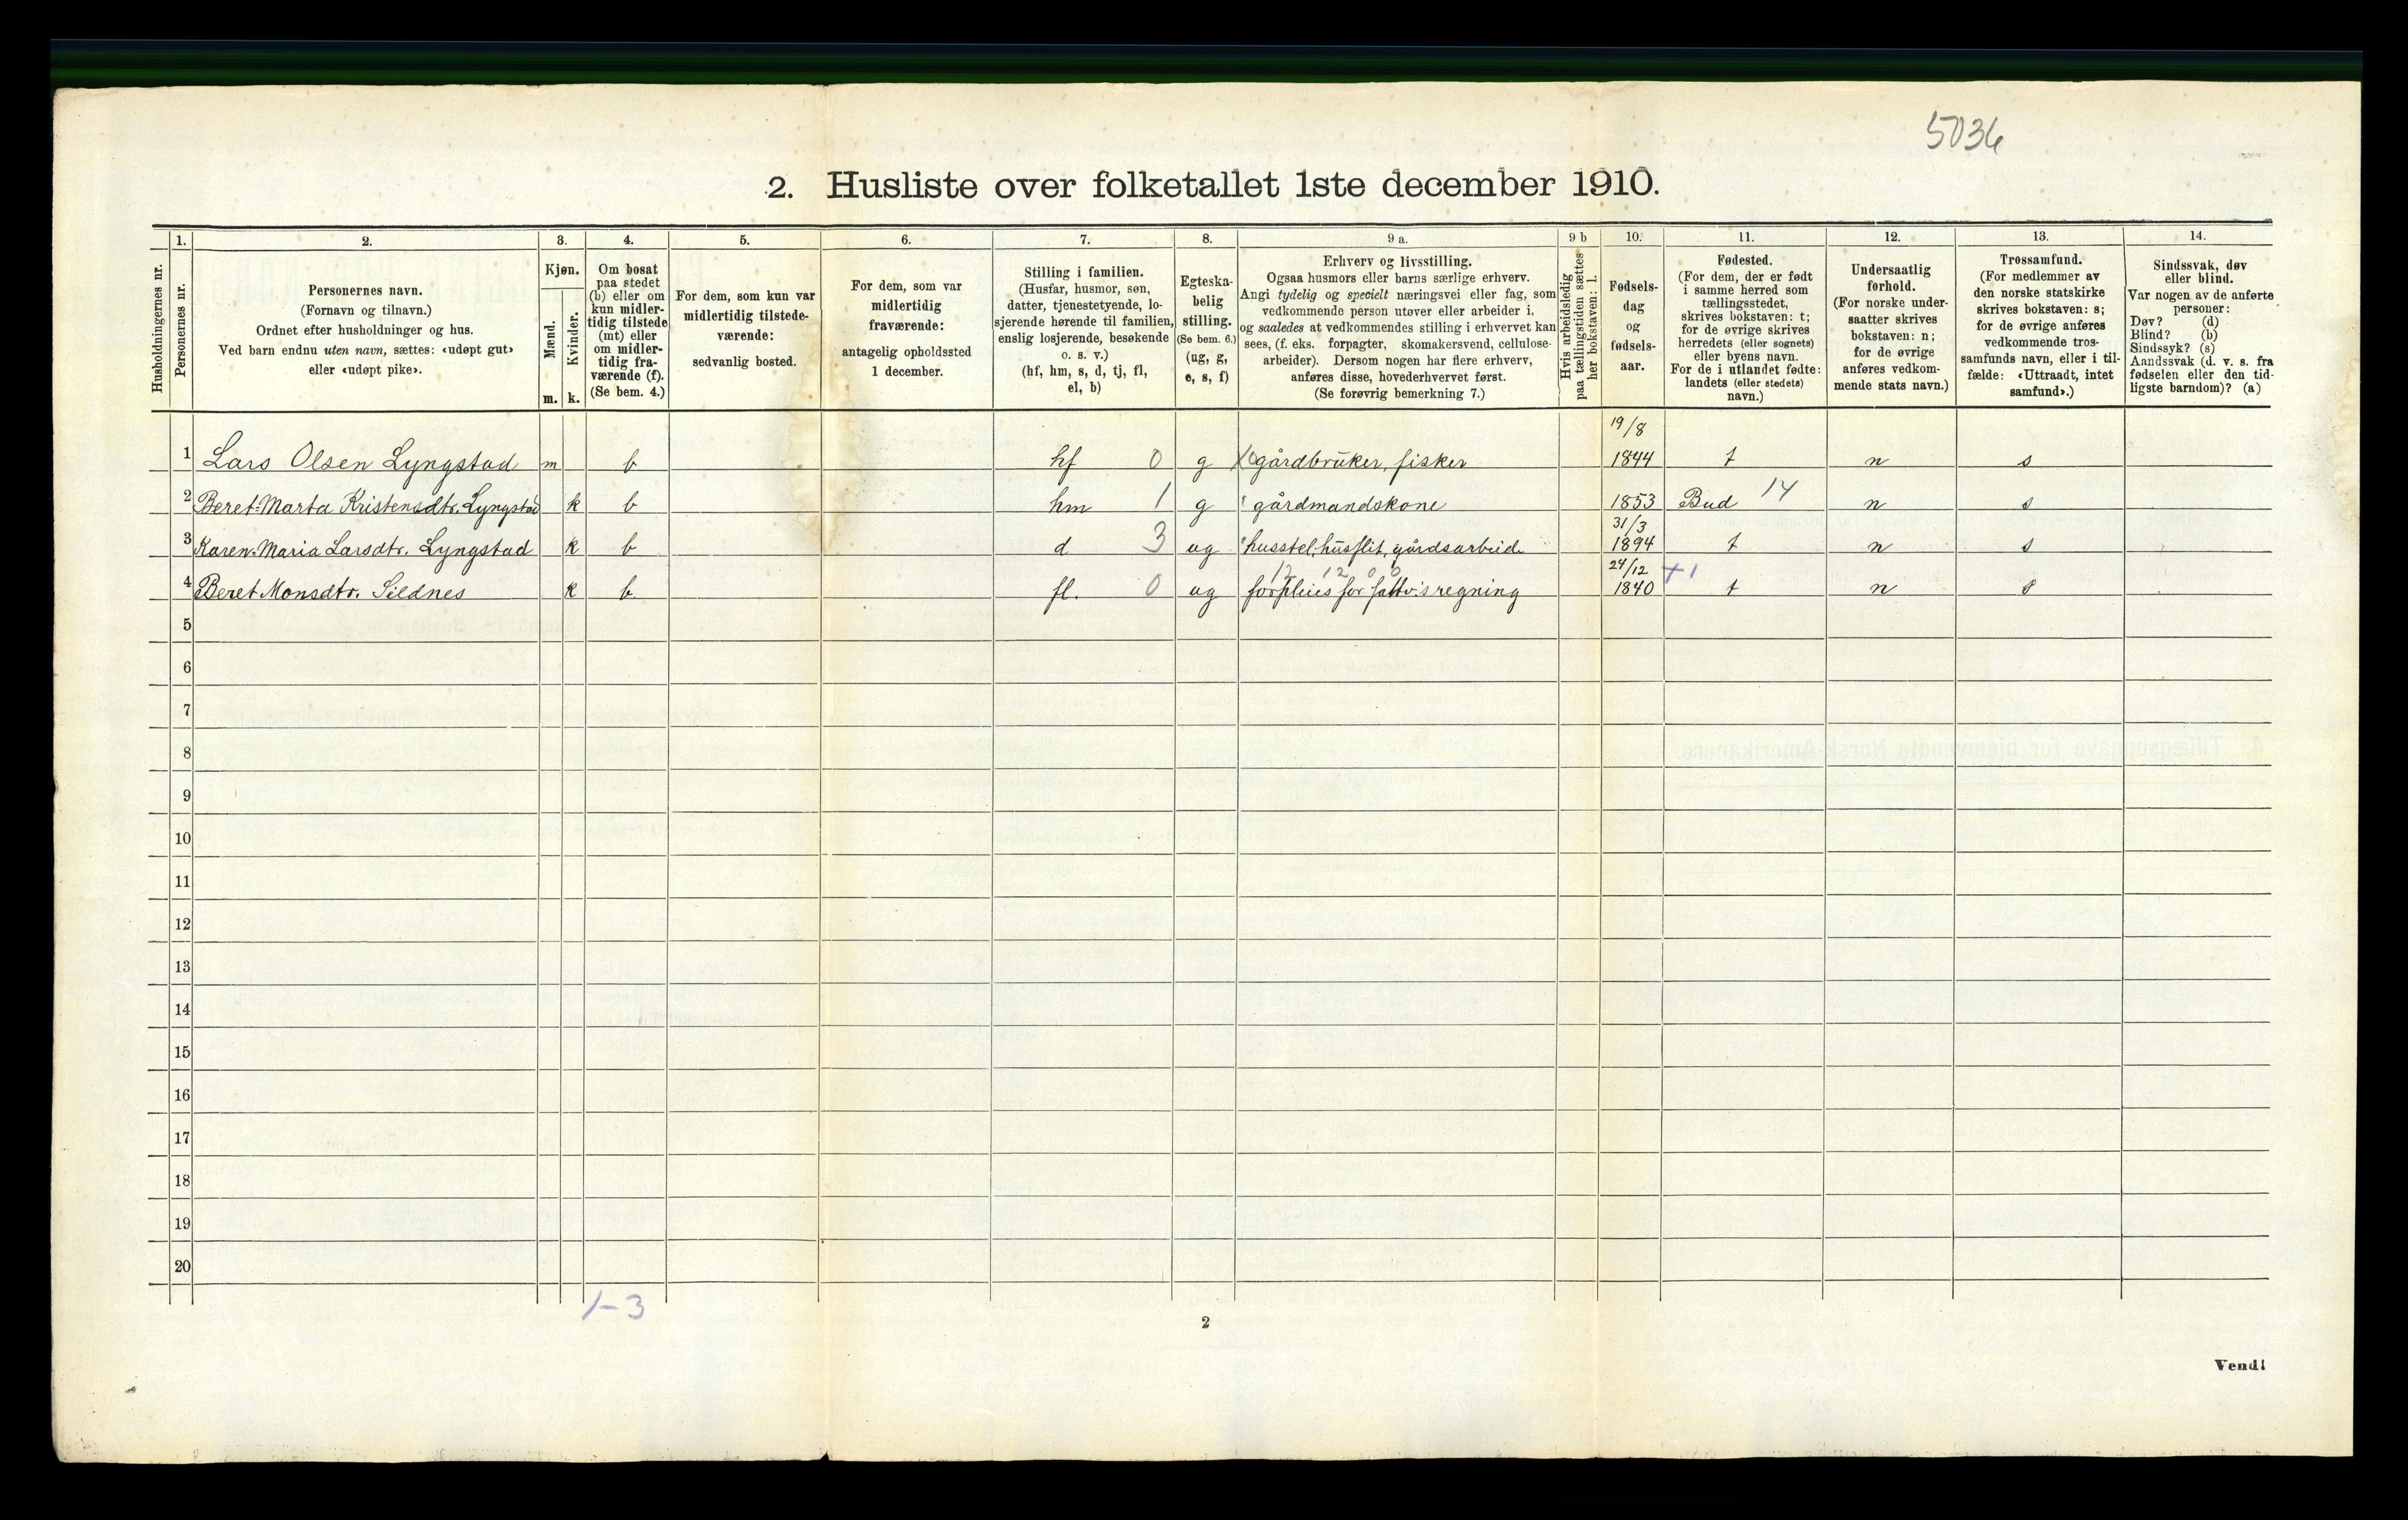 5036
2. Husliste over folketallet 1ste december 1910.
Husholdningernes nr.
1.
Personernes nr.
2.
Personernes navn.
(Fornavn og tilnavn.)
Ordnet efter husholdninger og hus.
Ved barn endnu uten navn, sættes: «udøpt gut»
eller «udøpt pike».
3.
Kjøn.
Mænd.
Kvinder.
m. k.
4.
Om bosat
paa stedet
(b) eller om
kun midler-
tidig tilstede
(mt) eller
om midler-
tidig fra-
værende (f).
(Se bem. 4.)
5.
For dem, som kun var
midlertidig tilstede-
værende:
sedvanlig bosted.
6.
For dem, som var
midlertidig
fraværende:
antagelig opholdssted
1 december.
7.
Stilling i familien.
(Husfar, husmor, søn,
datter, tjenestetyende, lo-
sjerende hørende til familien,
enslig losjerende, besøkende
o. s. v.)
(hf, hm, s, d, tj, fl,
el, b)
8.
Egteska-
belig
stilling.
(Se bem. 6.)
(ug, g,
e, s, f)
9 a.
Erhverv og livsstilling.
Ogsaa husmors eller barns særlige erhverv.
Angi tydelig og specielt næringsvei eller fag, som
vedkommende person utøver eller arbeider i,
og saaledes at vedkommendes stilling i erhvervet kan
sees, (f. eks. forpagter, skomakersvend, cellulose-
arbeider). Dersom nogen har flere erhverv,
anføres disse, hovederhvervet først.
(Se forøvrig bemerkning 7.)
9 b
Hvis arbeidsledig
paa tællingstiden sættes
her bokstaven: l.
10.
Fødsels-
dag
og
fødsels-
aar.
11.
Fødested.
(For dem, der er født
i samme herred som
tællingsstedet,
skrives bokstaven: t;
for de øvrige skrives
herredets (eller sognets)
eller byens navn.
For de i utlandet fødte:
landets (eller stedets)
navn.)
12.
Undersaatlig
forhold.
(For norske under-
saatter skrives
bokstaven: n;
for de øvrige
anføres vedkom-
mende stats navn.)
13.
Trossamfund.
(For medlemmer av
den norske statskirke
skrives bokstaven: s;
for de øvrige anføres
vedkommende tros-
samfunds navn, eller i til-
fælde: «Uttraadt, intet
samfund».)
14.
Sindssvak, døv
eller blind.
Var nogen av de anførte
personer:
Døv? (d)
Blind? (b)
Sindssyk? (s)
Aandssvak (d. v. s. fra
fødselen eller den tid-
ligste barndom)? (a)
19/8
1 Lars Olsen Lyngstad m b hf 0 g gårdbruker, fisker 1844 t n s
2 Beret-Marta Kristensdtr. Lyngstad k b hm 1 g gårdmandskone 1853 Bud 14 n s
31/3
3 Karen-Maria Larsdtr. Lyngstad k b d 3 ug husstel, husflit, gårdsarbeide 1894 t n s
12 12 0 0 24/12 +1
4 Beret Monsdtr. Sildnes k b fl. 0 ug forpleies for fattv.'s regning 1840 t n s
5
6
7
8
9
10
11
12
13
14
15
16
17
18
19
20
1-3
2
Vend!